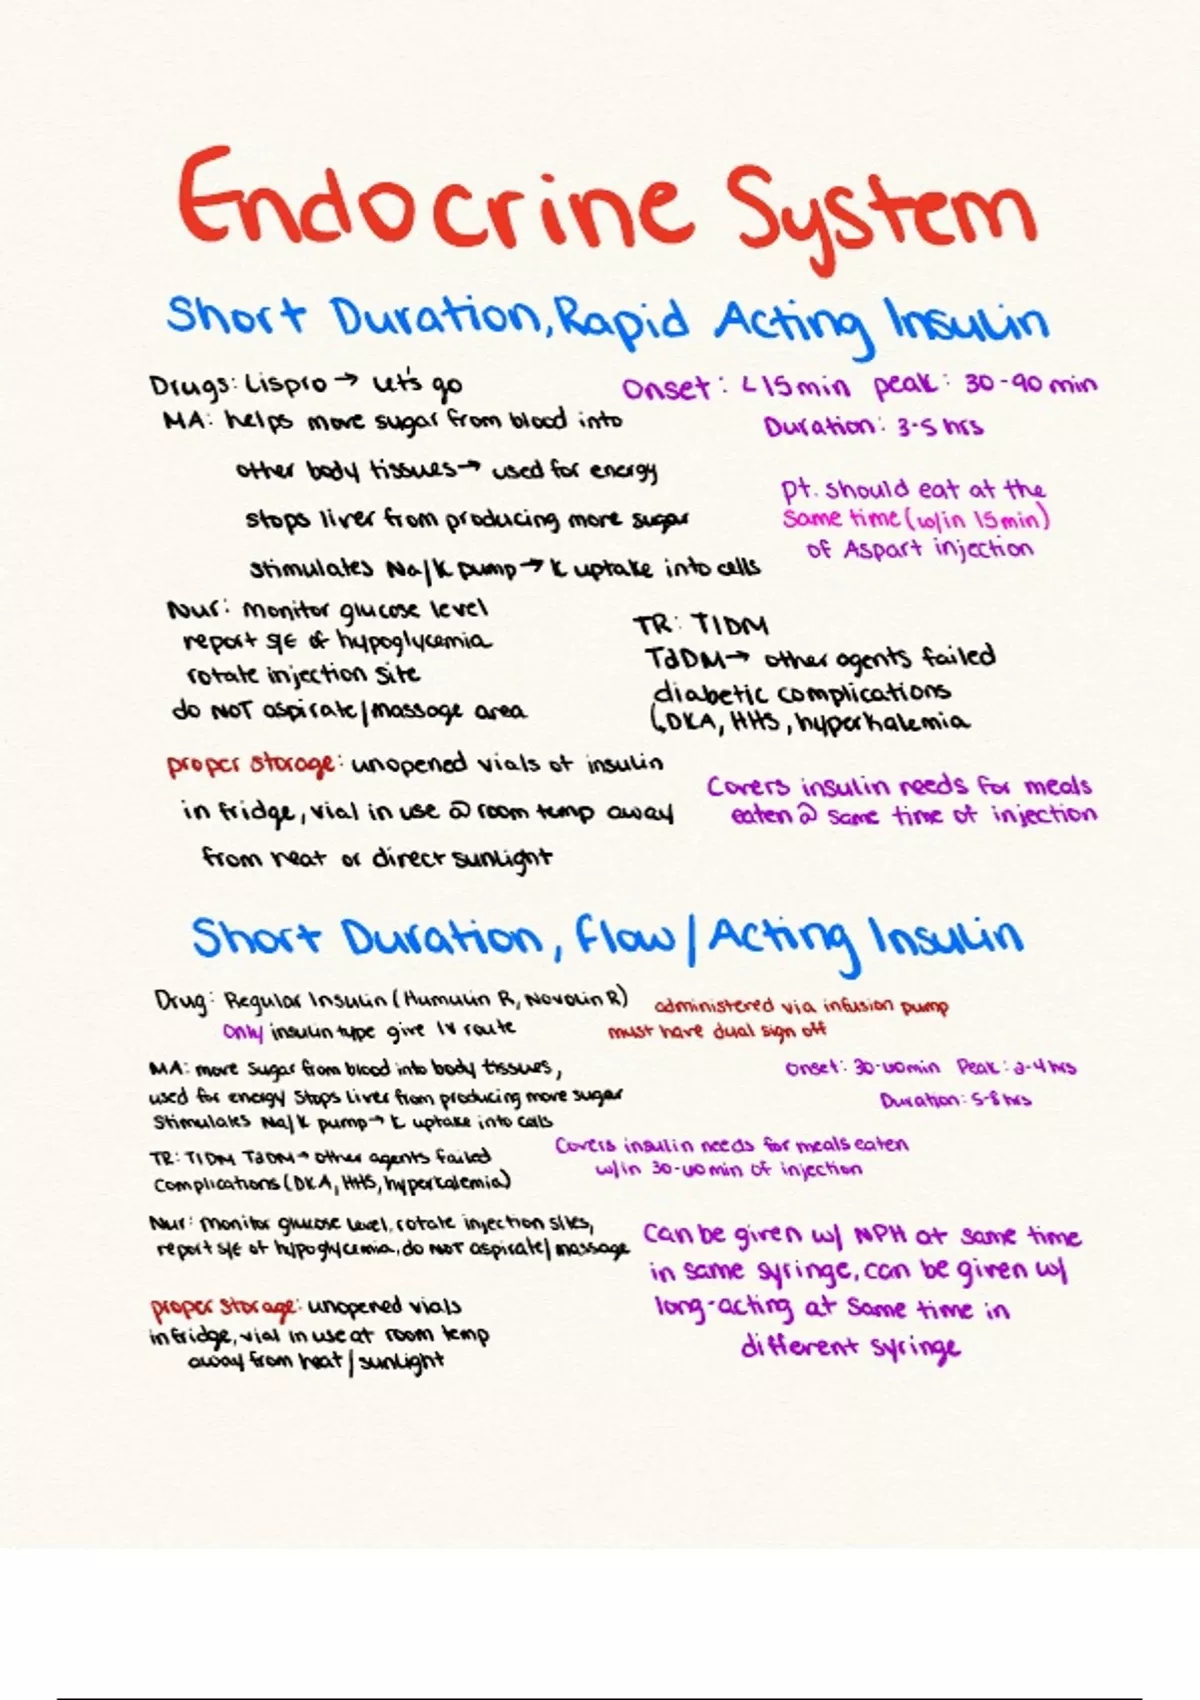 Endocrine System
Short Duration, Rapid Acting Insulin
Drugs: Lispro → Let's go
Onset: <15 min peak: 30-90 min
MA: helps move sugar from blood into
Duration: 3-5 hrs
other body tissues → used for energy
pt. should eat at the
stops liver from producing more sugar
same time (w/in 15 min)
of Aspart injection
stimulates Na/K pump → K uptake into cells
Nur: monitor glucose level
report S/E of hypoglycemia
rotate injection site
do NOT aspirate/massage area
TR: T1DM
T2DM → other agents failed
diabetic complications
↳DKA, HHS, hyperkalemia
proper storage: unopened vials of insulin
in fridge, vial in use @ room temp away
from heat or direct sunlight
Covers insulin needs for meals
eaten @ same time of injection
Short Duration, flow/Acting Insulin
Drug: Regular Insulin (Humulin R, Novolin R)
Only insulin type give IV route
administered via infusion pump
must have dual sign off
MA: move sugar from blood into body tissues,
used for energy Stops Liver from producing more sugar
Stimulates Na/K pump → K uptake into cells
Onset: 30-60min Peak: 2-4 hrs
Duration: 5-8 hrs
TR: T1DM T2DM → other agents failed
Complications (DKA, HHS, hyperkalemia)
Covers insulin needs for meals eaten
w/in 30-60 min of injection
Nur: monitor glucose level, rotate injection sites,
report S/E of hypoglycemia, do NOT aspirate/massage
Can be given w/ NPH at same time
in same syringe, can be given w/
long-acting at same time in
different syringe
proper storage: unopened vials
in fridge, vial in use at room temp
away from heat/sunlight